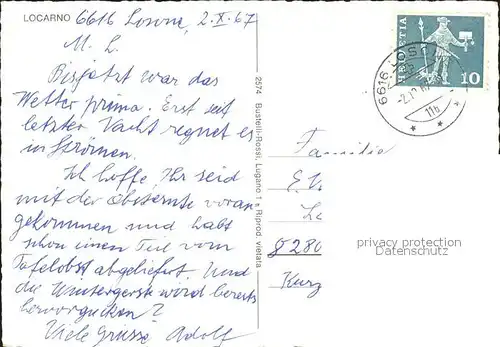 LOCARNO
6616 Losone, 2.X.67
M. L.
Bis jetzt war das
Wetter prima. Erst seit
letzter Nacht regnet es
in Strömen.
Ich hoffe, Ihr seid
mit der Obsternte voran-
gekommen und habt
schon einen Teil vom
Tafelobst abgeliefert. Und
die Wintergerste wird bereits
hervorgucken?
Viele Grüsse Adolf
2574 Bustelli-Rossi, Lugano 1 - Riprod. vietata
HELVETIA
10
6616 LOS
-2.10.67
11b
Familie
E.
§ 280
Kurz
privacy protection
Datenschutz